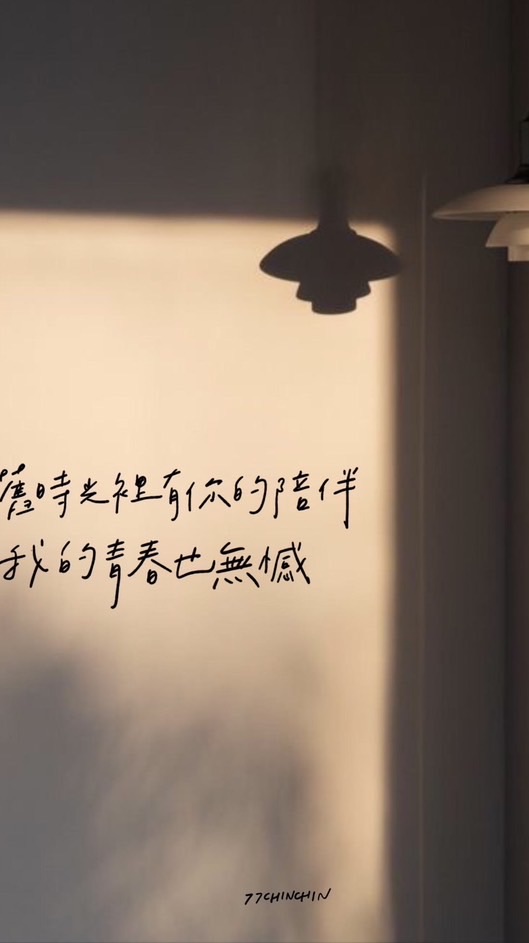 舊時光裡有你的陪伴
我的青春也無憾
77CHINCHIN